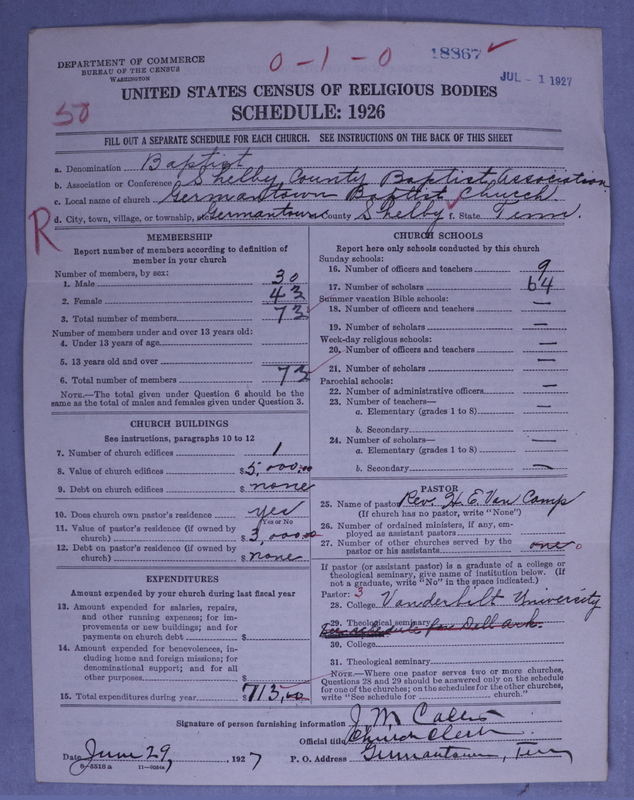 DEPARTMENT OF COMMERCE
BUREAU OF THE CENSUS
WASHINGTON
0-1-0
18867
JUL - 1 1927
50
UNITED STATES CENSUS OF RELIGIOUS BODIES
SCHEDULE: 1926
FILL OUT A SEPARATE SCHEDULE FOR EACH CHURCH. SEE INSTRUCTIONS ON THE BACK OF THIS SHEET
a. Denomination Baptist
b. Association or Conference Shelby County Baptist Association
c. Local name of church Germantown Baptist Church.
d. City, town, village, or township, etc. Germantown County Shelby f. State Tenn.
R
MEMBERSHIP
Report number of members according to definition of
member in your church
Number of members, by sex:
1. Male 30
2. Female 43
3. Total number of members 73
Number of members under and over 13 years old:
4. Under 13 years of age
5. 13 years old and over
6. Total number of members 73
NOTE.—The total given under Question 6 should be
same as the total of males and females given under Question 3.
CHURCH BUILDINGS
See instructions, paragraphs 10 to 12
7. Number of church edifices 1
8. Value of church edifices $5,000.00
9. Debt on church edifices $none
10. Does church own pastor's residence yes
(Yes or No)
11. Value of pastor's residence (if owned by
church) $3,000.00
12. Debt on pastor's residence (if owned by
church) $none
EXPENDITURES
Amount expended by your church during last fiscal year
13. Amount expended for salaries, repairs,
and other running expenses; for im-
provements or new buildings; and for
payments on church debt $
14. Amount expended for benevolences, in-
cluding home and foreign missions; for
denominational support; and for all
other purposes $
15. Total expenditures during year $713.00
CHURCH SCHOOLS
Report here only schools conducted by this church
Sunday schools:
16. Number of officers and teachers 9
17. Number of scholars 64
Summer vacation Bible schools:
18. Number of officers and teachers —
19. Number of scholars —
Week-day religious schools:
20. Number of officers and teachers —
21. Number of scholars —
Parochial schools:
22. Number of administrative officers —
23. Number of teachers—
a. Elementary (grades 1 to 8) —
b. Secondary
24. Number of scholars— —
a. Elementary (grades 1 to 8)
b. Secondary —
PASTOR
25. Name of pastor Rev. H. E. Van Camp
(If church has no pastor, write "None")
26. Number of ordained ministers, if any, em-
ployed as assistant pastors
27. Number of other churches served by the
pastor or his assistants one 0
If pastor (or assistant pastor) is a graduate of a college or
theological seminary, give name of institution below. (If
not a graduate, write "No" in the space indicated.)
Pastor: 3
28. College Vanderbilt Univercity
29. Theological seminary
See schedule for Dell Ark.
30. College
31. Theological seminary
NOTE.—Where one pastor serves two or more churches,
Questions 28 and 29 should be answered only on the schedule
for one of the churches; on the schedules for the other churches,
write "See schedule for church."
Signature of person furnishing information J. M.
Official title Church Clerk
Date June 29, 1927 P. O. Address Germantown, Tenn
11-9284